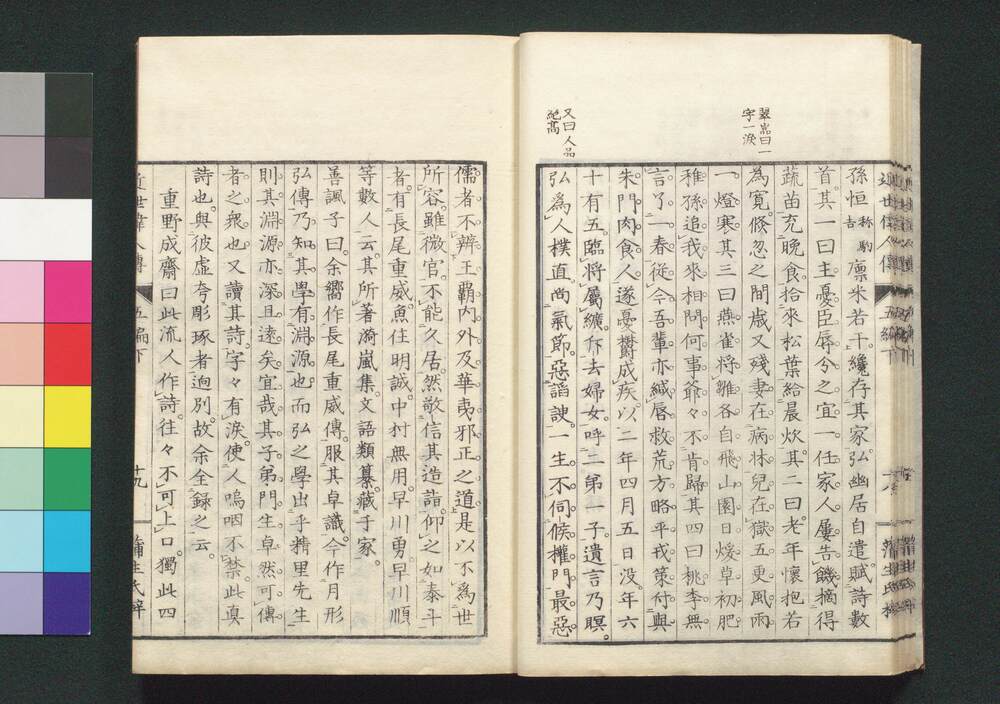 翠嵓曰一
字一淚
又曰人品
絶高
孫恒称駒吉廩米若干纔存其家弘幽居自遣賦詩數
首其一曰主憂臣辱分之宜一任家人屢告饑摘得
蔬苗充晚食拾來松葉給晨炊其二曰老年懷抱若
為寛倏忽之間歳又殘妻在病牀兒在獄五更風雨
一燈寒其三曰燕雀將雛各自飛山園日煖草初肥
稚孫追我來相問何事爺々不肯歸其四曰桃李無
言了一春從今吾輩亦緘唇救荒方略平戎策付與
朱門肉食人遂憂欝成疾以二年四月五日没年六
十有五臨將屬纊斥去婦女呼二弟一子遺言乃瞑
弘為人樸直尚氣節惡諂諛一生不伺候權門最惡
儒者不辨王覇内外及華夷邪正之道是以不為世
所容雖微官不能久居然敬信其造詣仰之如泰斗
者有長尾重威魚住明誠中村無用早川勇早川順
等數人云其所著漪嵐集文語類纂藏于家
善諷子曰余嚮作長尾重威傳服其卓識今作月形
弘傳乃知其學有淵源也而弘之學出乎精里先生
則其淵源亦深且遠矣宜哉其子弟門生卓然可傳
者之衆也又讀其詩字々有淚使人嗚咽不禁此真
詩也與彼虚夸彫琢者迥別故余全録之云
重野成齋曰此流人作詩往々不可上口獨此四
近世偉人傳 五編下 十九 蒲生氏梓